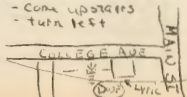 - come upstairs
- turn left
COLLEGE AVE
MAIN ST
DOVE
LYRIC